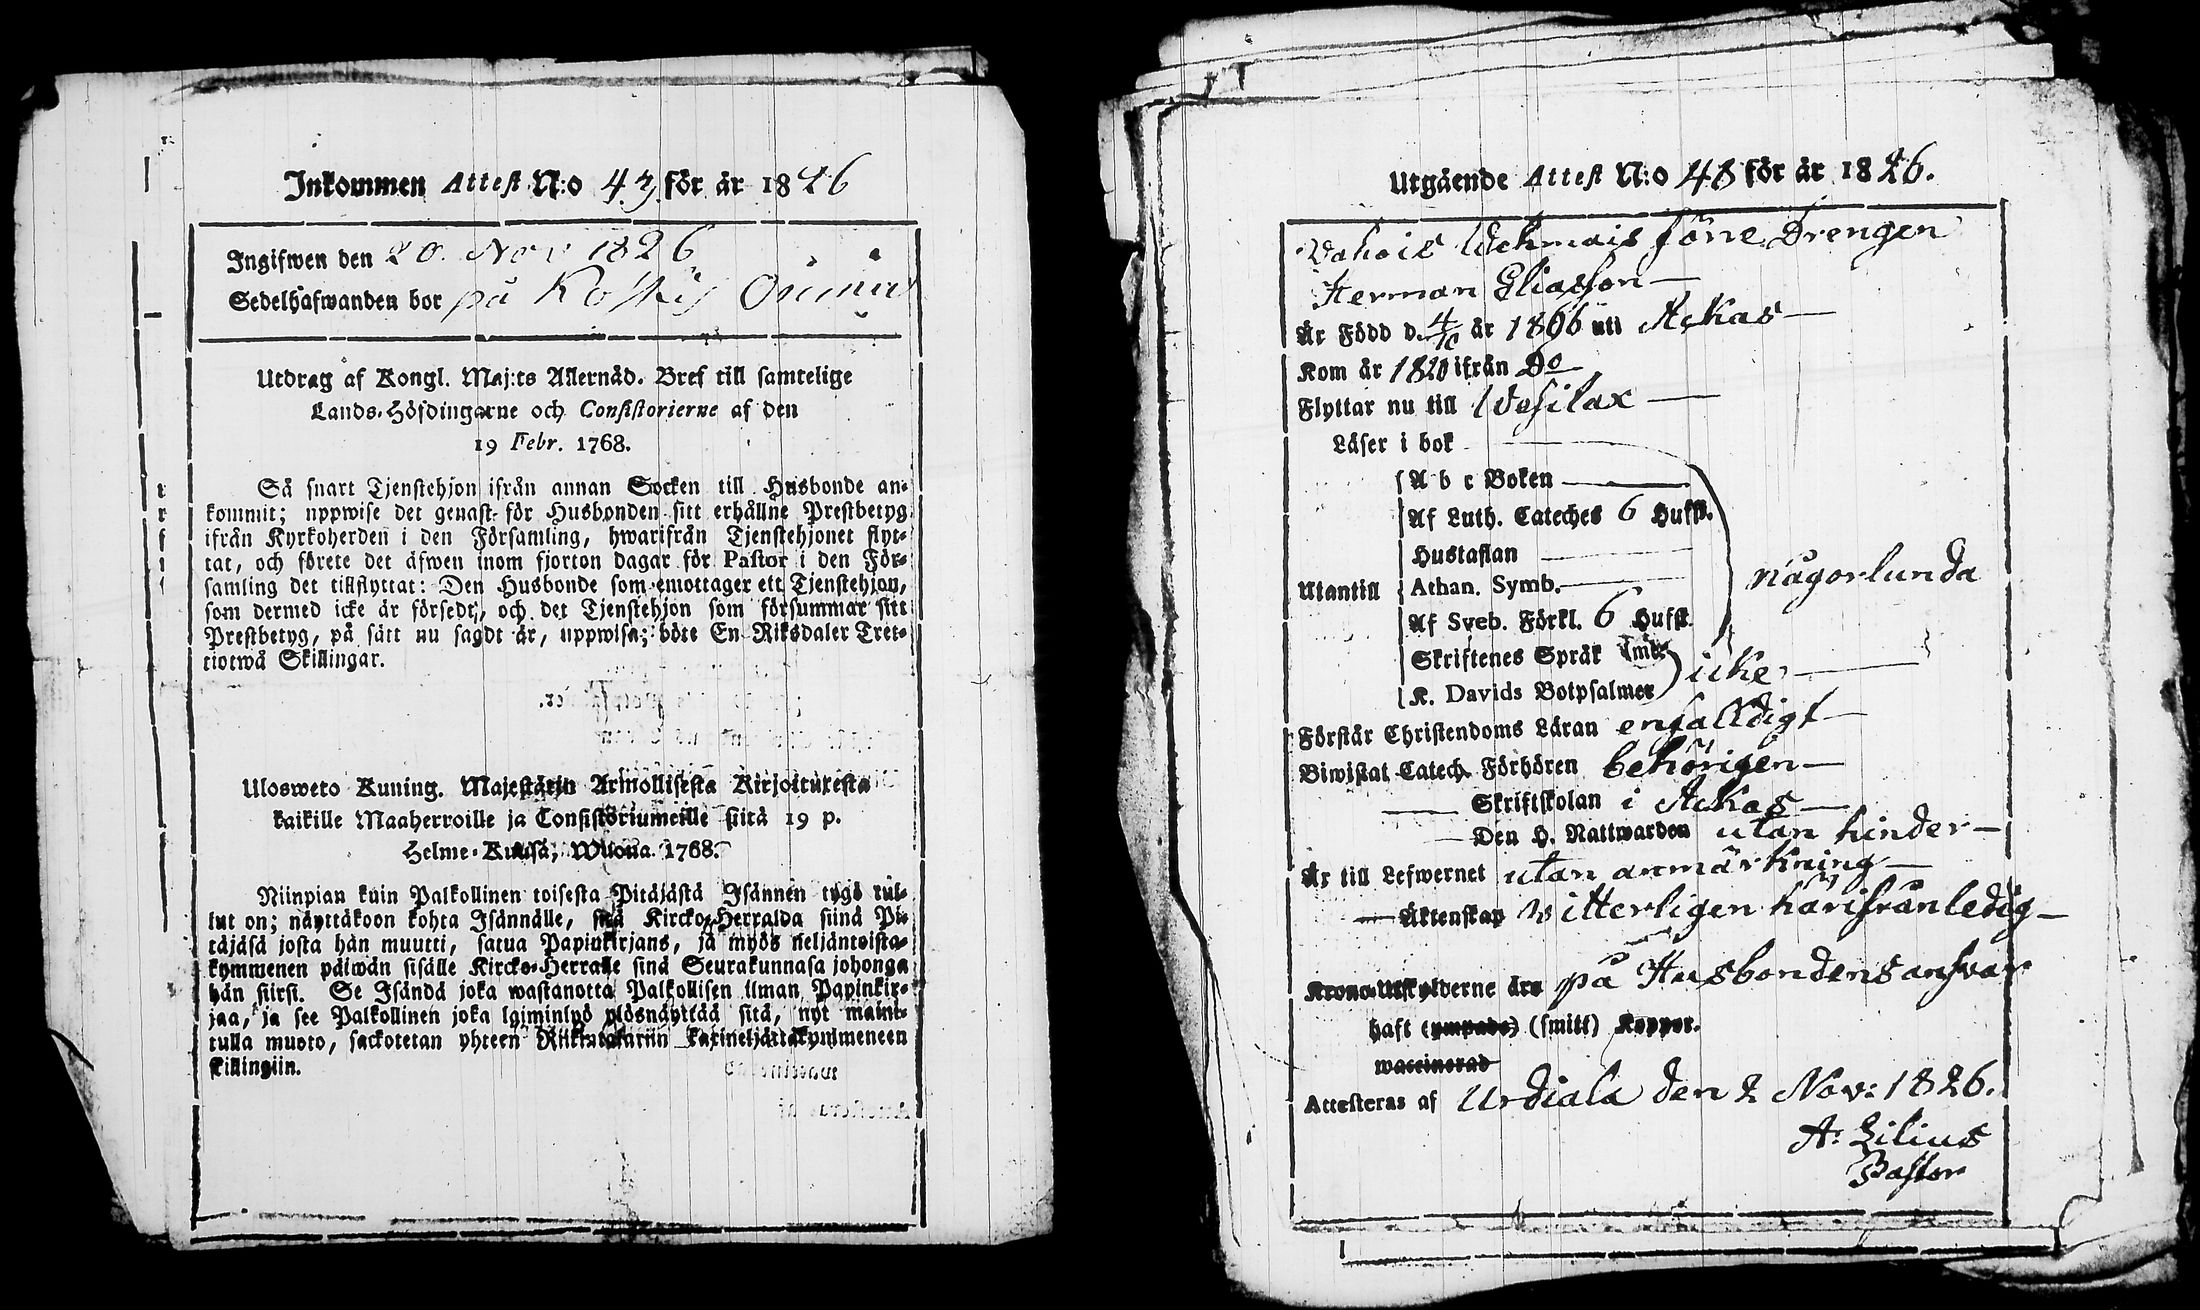 Inkommen Attest N:o 43 för år 1826
Ingifwen den 20. Nov 1826
Sedelhafwanden bor på Koskis
Utdrag af Kongl. Maj:ts Allernåd. Bref till samtelige
Lands-Höfdingarne och Consistorierne af den
19 Febr. 1768.
Så snart Tjenstehjon ifrån annan Socken till Husbonde an-
kommit; uppwise det genast för Husbonden sitt erhållne Prestbetyg
ifrån Kyrkoherden i den Församling, hwarifrån Tjenstehjonet flyt-
tat, och förete det äfwen inom fjorton dagar för Pastor i den För-
samling det tillflyttat: Den Husbonde som emottager ett Tjenstehjon,
som dermed icke är försedt, och det Tjenstehjon som försummar sitt
Prestbetyg, på sätt nu sagdt är, uppwisa; böte En Riksdaler Tret-
tiotwå Skillingar.
Ulosweto Kuning. Majestätin Armollisesta Kirjoituxesta
kaikille Maaherroille ja Consistoriumeille siitä 19 p.
Helme-Kuusa, Wuonna 1768.
Niinpian kuin Palkollinen toisesta Pitäjästä Isännen tygö tul-
lut on; näyttäkoon kohta Isännälle, sitä Kircko-Herralda siinä Pi-
täjäsä josta hän muutti, saatua Papinkirjans, ja myös neljäntoista-
kymmenen päiwän sisälle Kircko-Herralle sinä Seurakunnasa johonga
hän siirsi. Se Isändä joka wastanotta Palkollisen ilman Papinkir-
jaa, ja see Palkollinen joka laiminlyö ylösnäyttää sitä, nyt mainit-
tulla muoto, sackotetan yhteen Riikintaleriin kaxineljättäkymmeneen
killingiin.
Utgående Attest N:o 48 för år 1826.
Vahois Wehmais före Drengen
Herman Eliasson
Är Född d. 4/10 år 1806 uti Ackas
Kom år 1820 ifrån Do
Flyttar nu till Wesilax
Läser i bok
A b c Boken
Af Luth. Cateches 6 Hufst.
Hustaflan
Utantill Athan. Symb. någorlunda
Af Sveb. Förkl. 6 Hufst.
Skriftenes Språk
K. Davids Botpsalmer icke
Förstår Christendoms Läran enfalldigt
Biwistat Catech. Förhören behörigen
Skriftskolan i Ackas
Den H. Nattwarden utan hinder
Är till Lefwernet utan anmärkning
Äktenskap witterligen härifrån ledig
Krono-Utskylderne äro på Husbondens answar
haft (ympade) (smitt) Koppor.
waccinerad
Attesteras af Urdiala den 2 Nov: 1826.
A: Lilius
Pastor